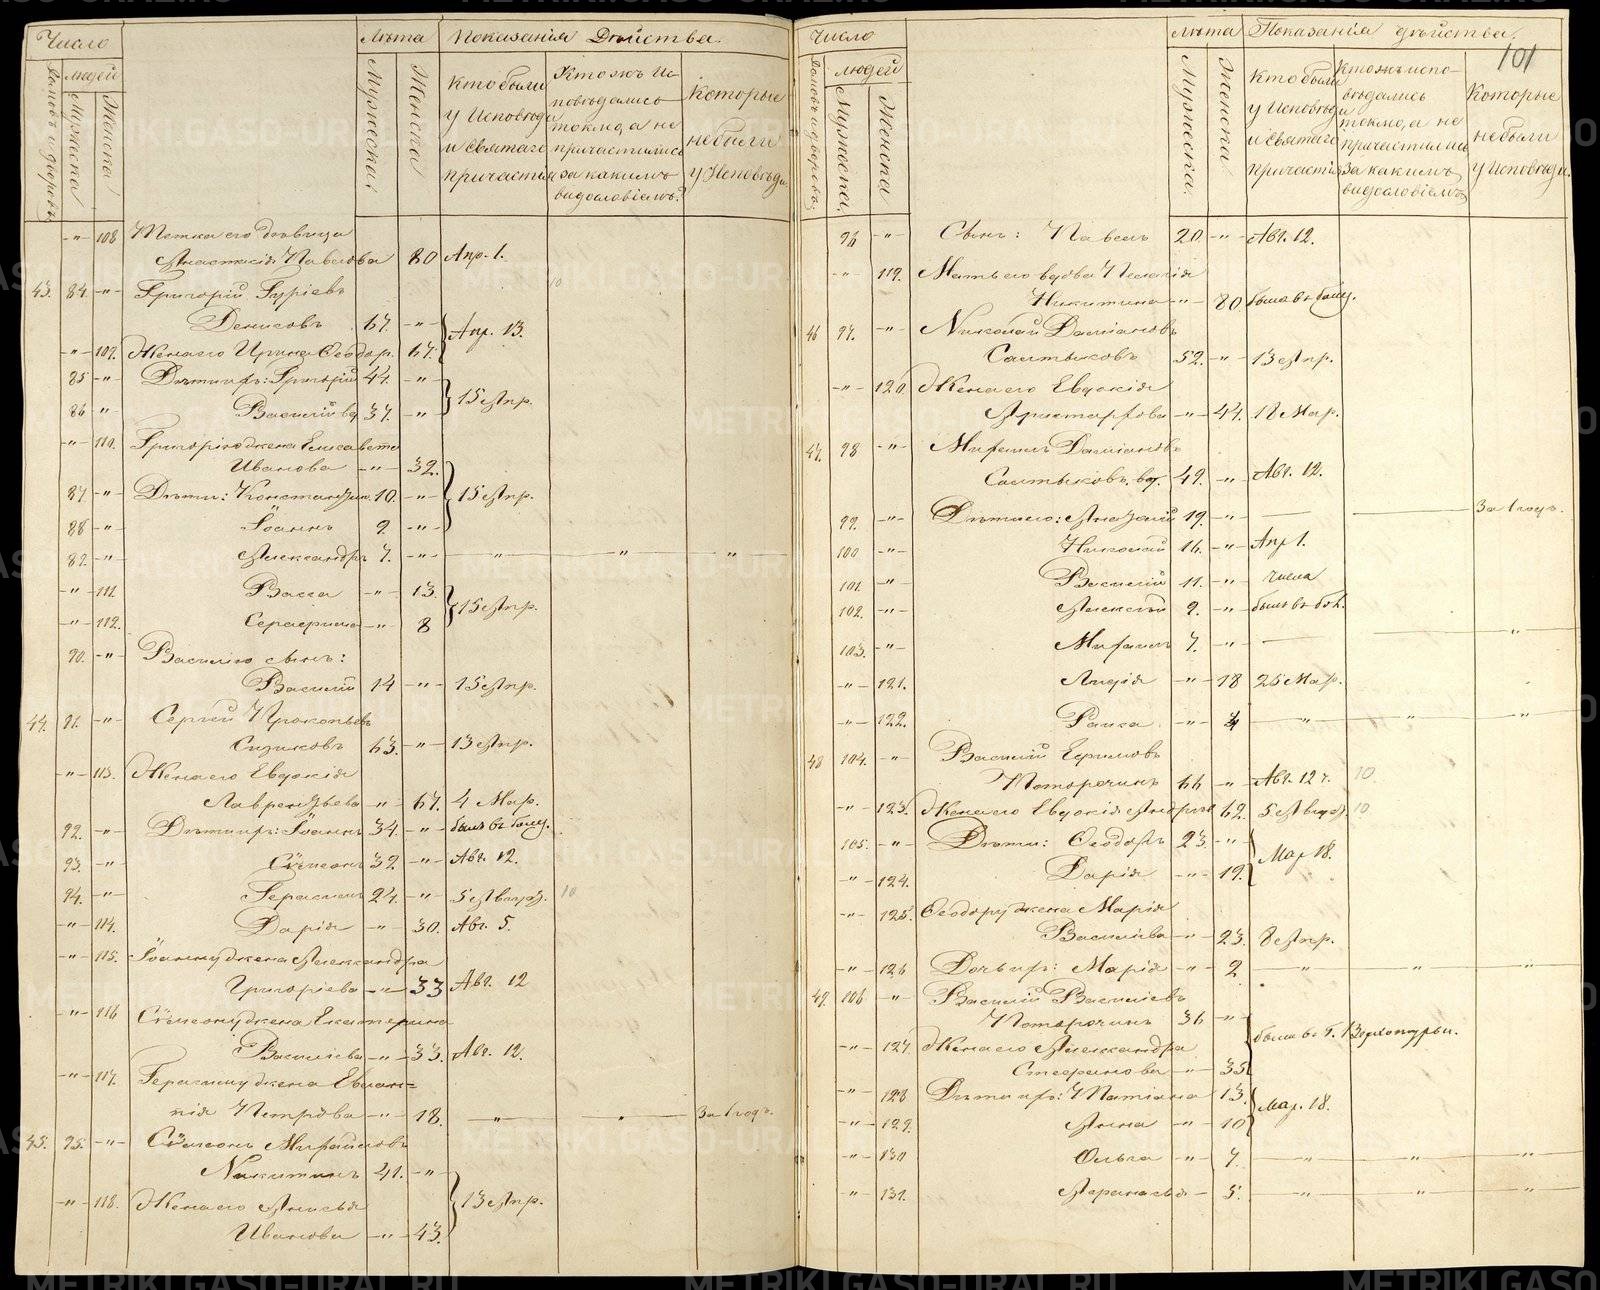 Число
Лѣта Показанія Дѣйства.
людей
Домовъ и дворовъ.
Мужеска
Женска
Мужеская
Женска
Кто были у Исповѣди и святаго причастія
Кто жъ Исповѣдались токмо, а не причастились за какимъ видословіемъ?
Которые не были у Исповѣди.
-"- 108 Тетка его дѣвица
Анастасія Павлова 80 Апр. 1.
43. 84. -"- Григорій Гуріевъ
Денисовъ 67. -"-
Апр. 13.
-"- 109. Жена его Ирина Ѳеодор. 67.
85 -"- Дѣти ихъ: Григорій 44. -"-
15 Апр.
86 -"- Василій вд. 37. -"-
-"- 110. Григорію жена Елисавета
Иванова -"- 32.
87 -"- Дѣти: Константин. 10. -"- 15 Апр.
88 -"- Іоаннъ 9. -"-
89. -"- Александръ 7. -"- " " "
-"- 111. Васса -"- 13.
15 Апр.
-"- 112. Серафима -"- 8
90. -"- Василію сынъ:
Василій 14 -"- 15 Апр.
44. 91. -"- Сергій Прокопьевъ
Сизиковъ 63. -"- 13 Апр.
-"- 113. Жена его Евдокія
Лаврентьева -"- 67. 4 Мар.
92. -"- Дѣти ихъ: Іоаннъ 34. -"- былъ въ болѣ.
93. -"- Сѵмеонъ 32. -"- Авг. 12.
94. -"- Герасимъ 24. -"- 5 Август. 10
-"- 114. Дарія -"- 30. Авг. 5.
-"- 115. Іоанну жена Александра
Григоріева -"- 33 Авг. 12
-"- 116 Сѵмеону жена Екатерина
Василіева -"- 33. Авг. 12.
-"- 117. Герасиму жена Евлам=
пія Петрова -"- 18. " " За 1 годъ.
45. 95. -"- Сѵмеонъ Михайловъ
Никитинъ 41. -"-
13 Апр.
-"- 118. Жена его Анисья
Иванова -"- 43.
101
Число
Лѣта Показанія дѣйства.
людей
Домовъ и дворовъ.
Мужеска.
Женска
Мужеска.
Женска.
Кто были у Исповѣди и святаго причастія
Кто жъ исповѣдались токмо, а не причастились за какимъ видословіемъ
Которые не были у Исповѣди.
96 -"- Сынъ: Павелъ 20 -"- Авг. 12.
-"- 119. Мать его вдова Пелагія
Никитина -"- 80 была въ болѣ.
46 97. -"- Николай Даміановъ
Салтыковъ 52. -"- 13 Апр.
-"- 120. Жена его Евдокія
Аристархова -"- 47. 18 Мар.
47. 98 -"- Михаилъ Даміановъ
Салтыковъ. вд. 49. -"- Авг. 12.
99. -"- Дѣти его: Анатолій 19. -"- За 1 годъ.
100 -"- Николай 16. -"- Апр. 1.
101. -"- Василій 11. -"- числа
102. -"- Алексѣй 9. -"- былъ въ бол.
103. -"- Михаилъ 7. -"- "
-"- 121. Лидія -"- 18 25 Мар.
-"- 122. Раиса -"- 4 " " "
48 104. -"- Василій Ефимовъ
Поторочинъ 66 -"- Авг. 12 ч. 10.
-"- 123. Жена его Евдокія Андреев. 62. 5 Август. 10
105. -"- Дѣти: Ѳеодоръ 23. -"-
Мар. 18.
-"- 124. Дарія -"- 19.
-"- 125. Ѳеодору жена Марія
Василіева -"- 23. 8 Апр.
-"- 126 Дочь ихъ: Марія -"- 2 " " "
49. 106 -"- Василій Василіевъ
Поторочинъ 36 -"-
были въ г. Верхотурьи.
-"- 127. Жена его Александра
Стефанова -"- 35
-"- 128 Дѣти ихъ: Татіана 13.
Мар. 18.
-"- 129. Анна -"- 10
-"- 130 Ольга -"- 7. " " "
-"- 131. Афанасья - 5. " " "